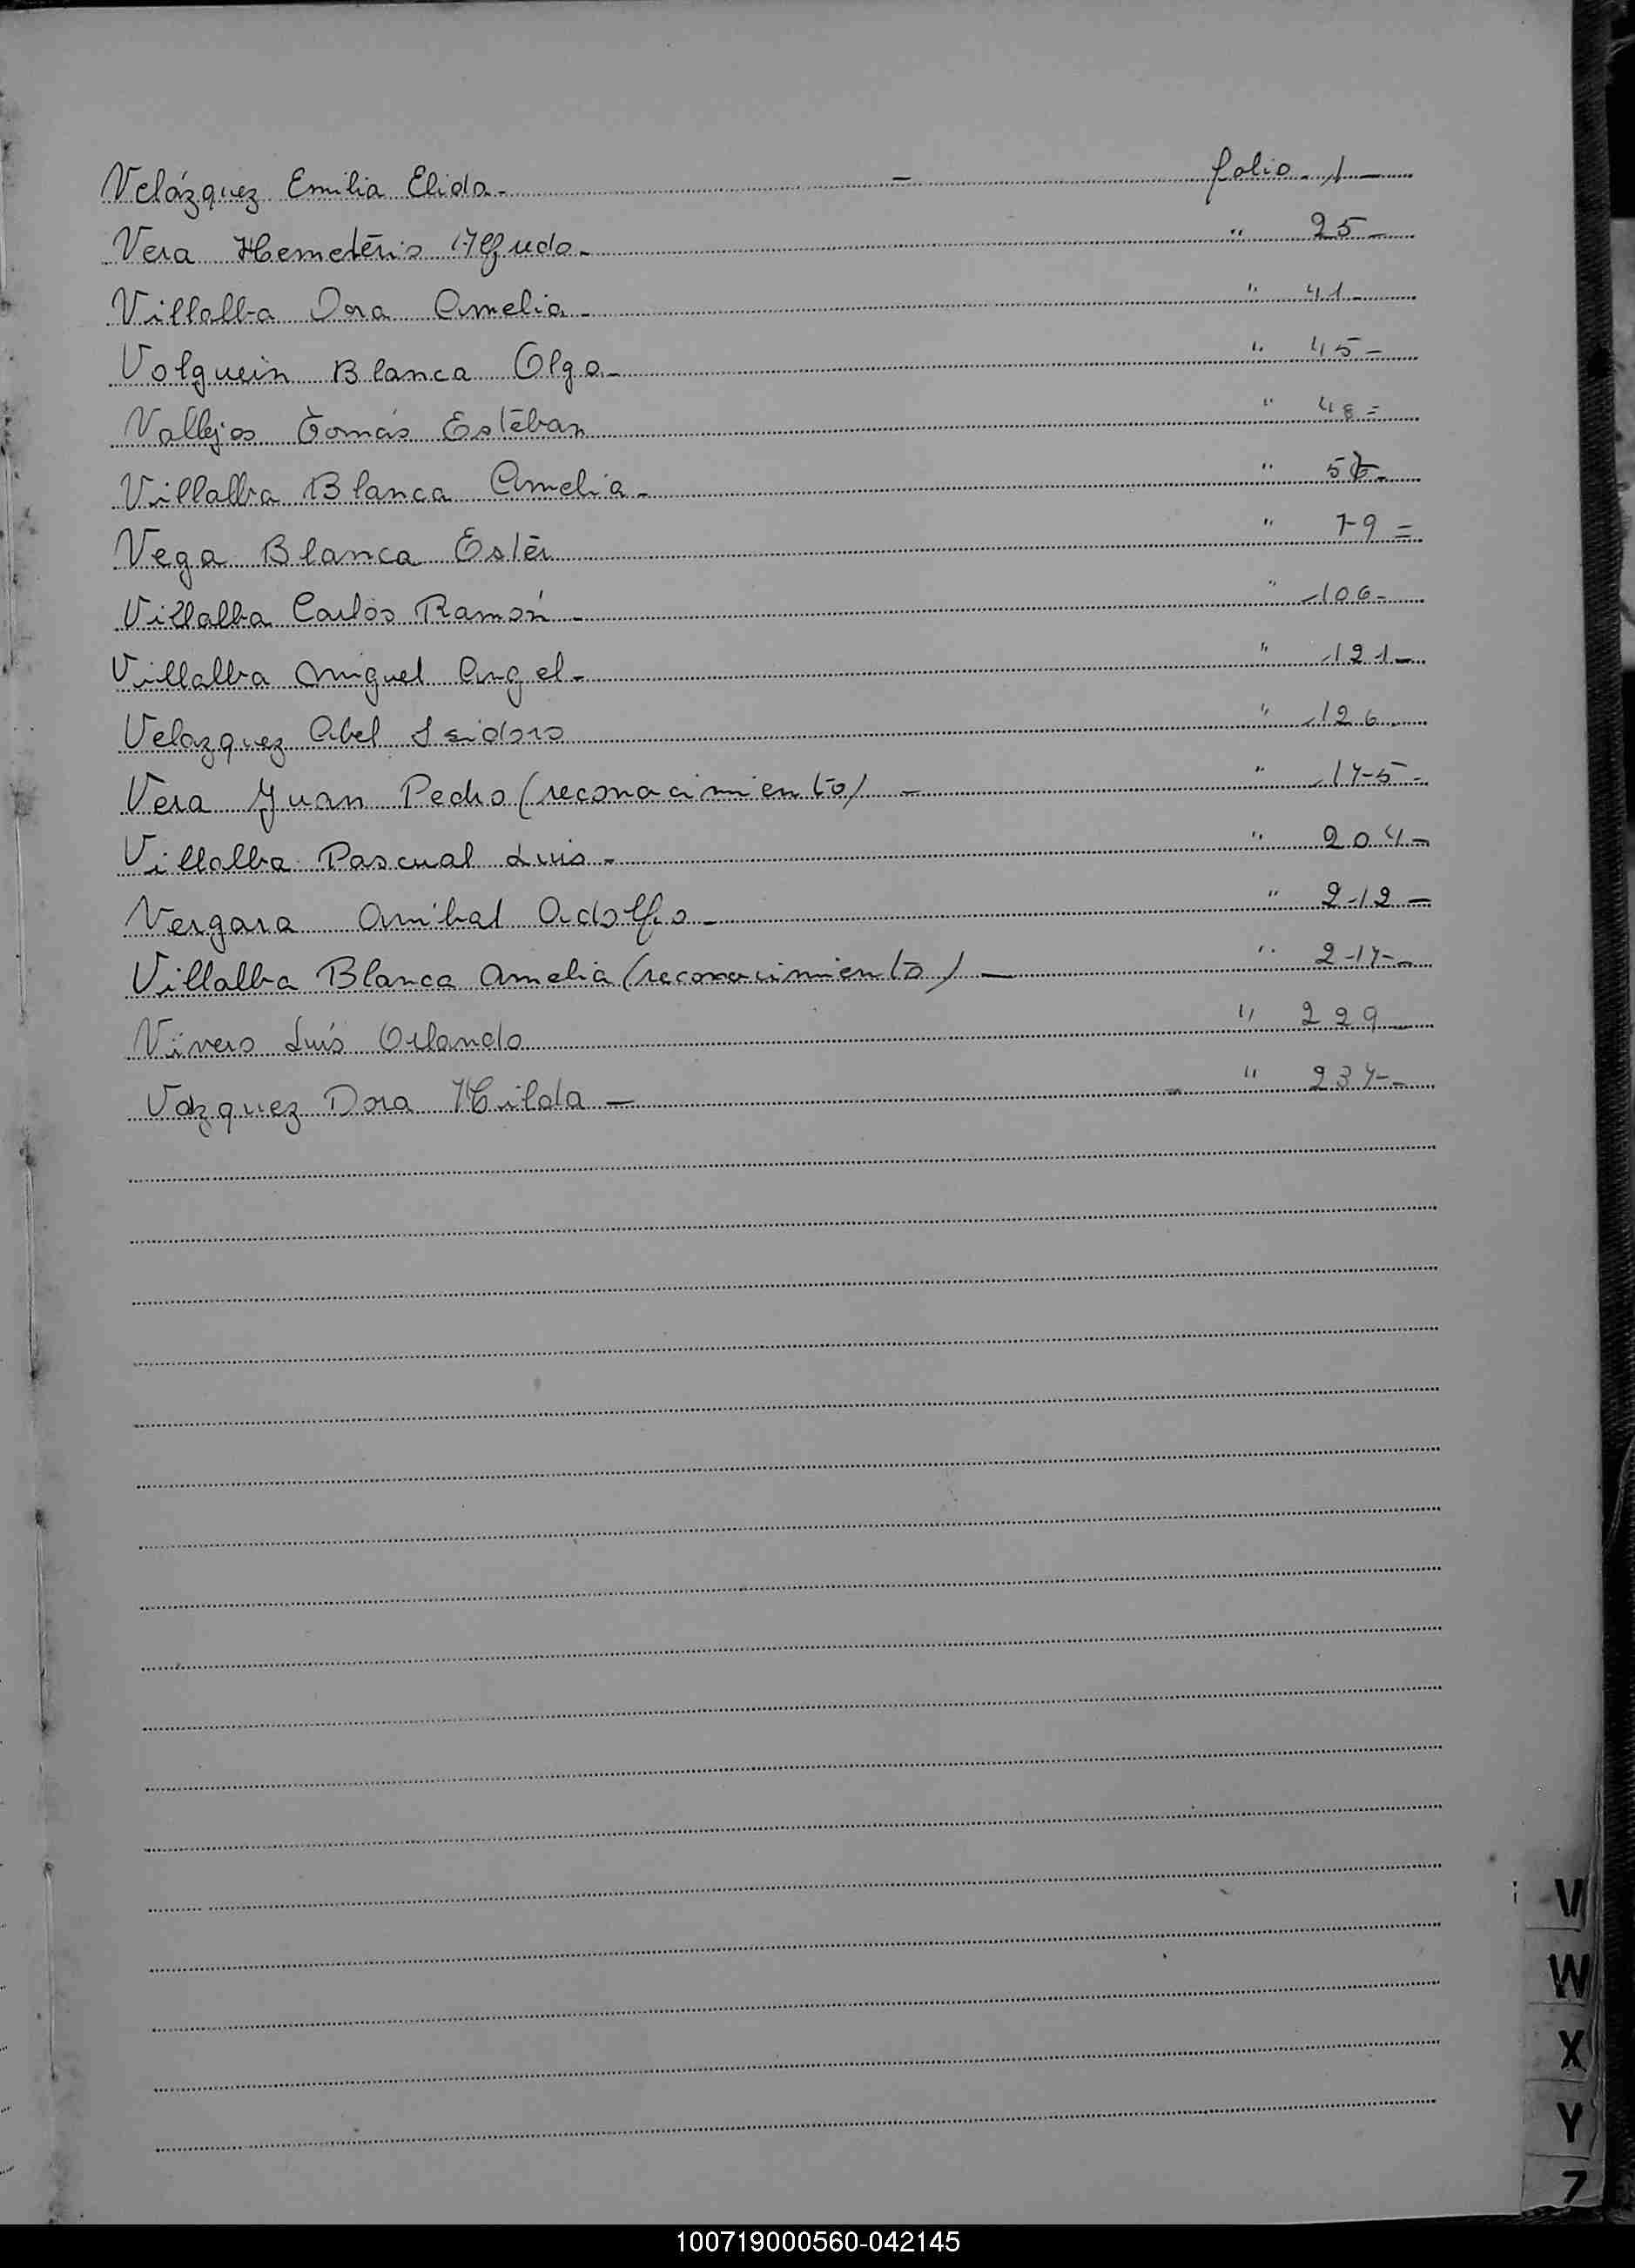 Velázquez Emilia Elida - - folio 1 -
Vera Hemetério Alfredo - " 25 -
Villalba Dora Amelia - " 41 -
Volguein Blanca Olga - " 45 -
Vallejos Tomás Estéban " 48 =
Villalba Blanca Amelia - "
Vega Blanca Estér " 79 =
Villalba Carlos Ramón - " 106 -
Villalba Miguel Angel - " 121 -
Velazquez Abel Isidoro " 126
Vera Juan Pedro (reconocimiento) - " 175 -
Villalba Pascual Luis - " 204 -
Vergara Anibal Adolfo - " 212 -
Villalba Blanca Amelia (reconocimiento) - " 217 -
Vivero Luis Orlando " 229 -
Vazquez Dora Hilda - - " 237 -
V
W
X
Y
Z
100719000560-042145